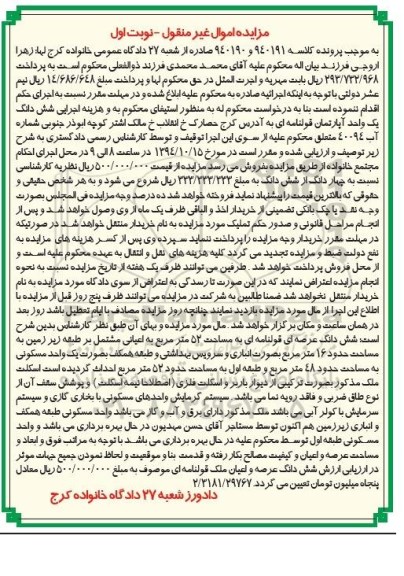 مزایده اموال غیر منقول - نوبت اول
به موجب پرونده کلاسه ۹۴۰۱۹۱ و ۹۴۰۱۹۰ صادره از شعبه ۲۷ دادگاه عمومی خانواده کرج لها: زهرا
اروجی فرزند بیان اله محکوم علیه آقای محمد محمدی فرزند ذوالفعلی محکوم است به پرداخت
۲۹۳/۷۳۲/۹۶۸ ریال بابت مهریه و اجرت المثل در حق محکوم لها و پرداخت مبلغ ۱۴/۶۸۶/۶۴۸ ریال نیم
عشر دولتی با توجه به اینکه اجرائیه صادره به محکوم علیه ابلاغ شده و در مهلت مقرر نسبت به اجرای حکم
اقدام ننموده است بنا به درخواست محکوم له به منظور استیفای محکوم به و هزینه اجرایی شش دانگ
یک واحد آپارتمان قولنامه ای به آدرس کرج حصارک خ انقلاب خ مالک اشتر کوچه ابوذر جنوبی شماره
آب ۴۰۰۹۴ متعلق محکوم علیه از سوی این اجرا توقیف و توسط کارشناس رسمی دادگستری به شرح
زیر توصیف و ارزیابی شده و مقرر است در مورخ ۱۳۹۴/۱۰/۱۵ در ساعت ۸ الی ۹ در محل اجرای احکام
مجتمع خانواده از طریق مزایده بفروش می رسد مزایده از قیمت ۵۰۰/۰۰۰/۰۰۰ ریال نظریه کارشناسی
نسبت به چهار دانگ از شش دانگ به مبلغ ۳۳۳/۳۳۳/۳۳۳ ریال شروع می شود و به هر شخص حقیقی و
حقوقی که بالاترین قیمت را پیشنهاد نماید فروخته خواهد شد ده درصد وجه مزایده فی المجلس بصورت
وجه نقد یا چک بانکی تضمینی از خریدار اخذ و الباقی ظرف یک ماه از وی وصول خواهد شد و پس از
انجام مراحل قانونی و صدور حکم تملیک مورد مزایده به نام خریدار منتقل خواهد شد در صورتیکه
در مهلت مقرر خریدار وجه مزایده را پرداخت ننماید سپرده وی پس از کسر هزینه های مزایده به
نفع دولت ضبط و مزایده تجدید می گردد کلیه هزینه های نقل و انتقال به عهده محکوم علیه است و
از محل فروش پرداخت خواهد شد. طرفین می توانند ظرف یک هفته از تاریخ مزایده نسبت به نحوه
انجام مزایده اعتراض نمایند که در این صورت تا رسدگی به اعتراض از سوی دادگاه مورد مزایده به نام
خریدار منتقل نخواهد شد ضمنا طالبین به شرکت در مزایده می توانند ظرف پنج روز قبل از مزایده با
اطلاع این اجرا از مال مورد مزایده بازدید نمایند چنانچه روز مزایده مصادف با ایام تعطیل باشد روز بعد
در همان ساعت و مکان برگزار خواهد شد. مال مورد مزایده و بهای آن طبق نظر کارشناس بدین شرح
است: شش دانگ عرصه ای قولنامه ای به مساحت ۵۲ متر مربع به اعیانی مشتمل بر طبقه زیر زمین به
مساحت حدود ۱۶ متر مربع بصورت انباری و سرویس بهداشتی و طبقه همکف بصورت یک واحد مسکونی
به مساحت حدود ۴۸ متر مربع و طبقه اول به مساحت حدود ۵۲ متر مربع احداث گردیده است اسکلت
ملک مذکور بصورت ترکیبی از دیوار باربر و اسکلت فلزی (اصطلاحا نیمه اسکلت) و پوشش سقف آن از
نوع طاق ضربی و فاقد رویه نما می باشد. سیستم گرمایش واحدهای مسکونی با بخاری گازی و سیستم
سرمایش با کولر آبی می باشد ملک مذکور دارای برق و آب و گاز می باشد واحد مسکونی طبقه همکف
و انباری زیرزمین هم اکنون توسط مستاجر آقای حسن مهدیون در حال بهره برداری می باشد و واحد
مسکونی طبقه اول توسط محکوم علیه در حال بهره برداری می باشد با توجه به مراتب فوق و ابعاد و
مساحت عرصه و اعیان و کیفیت مصالح بکار رفته و قدمت بنا و موقعیت و لحاظ نمودن جمیع جهات موثر
در ارزیابی ارزش شش دانگ عرصه و اعیان ملک قولنامه ای موصوف به مبلغ ۵۰۰/۰۰۰/۰۰۰ ریال معادل
پنجاه میلیون تومان تعیین می گردد. ۲/۳۱۸۱/۲۹۷۶۷
دادورز شعبه ۲۷ دادگاه خانواده کرج